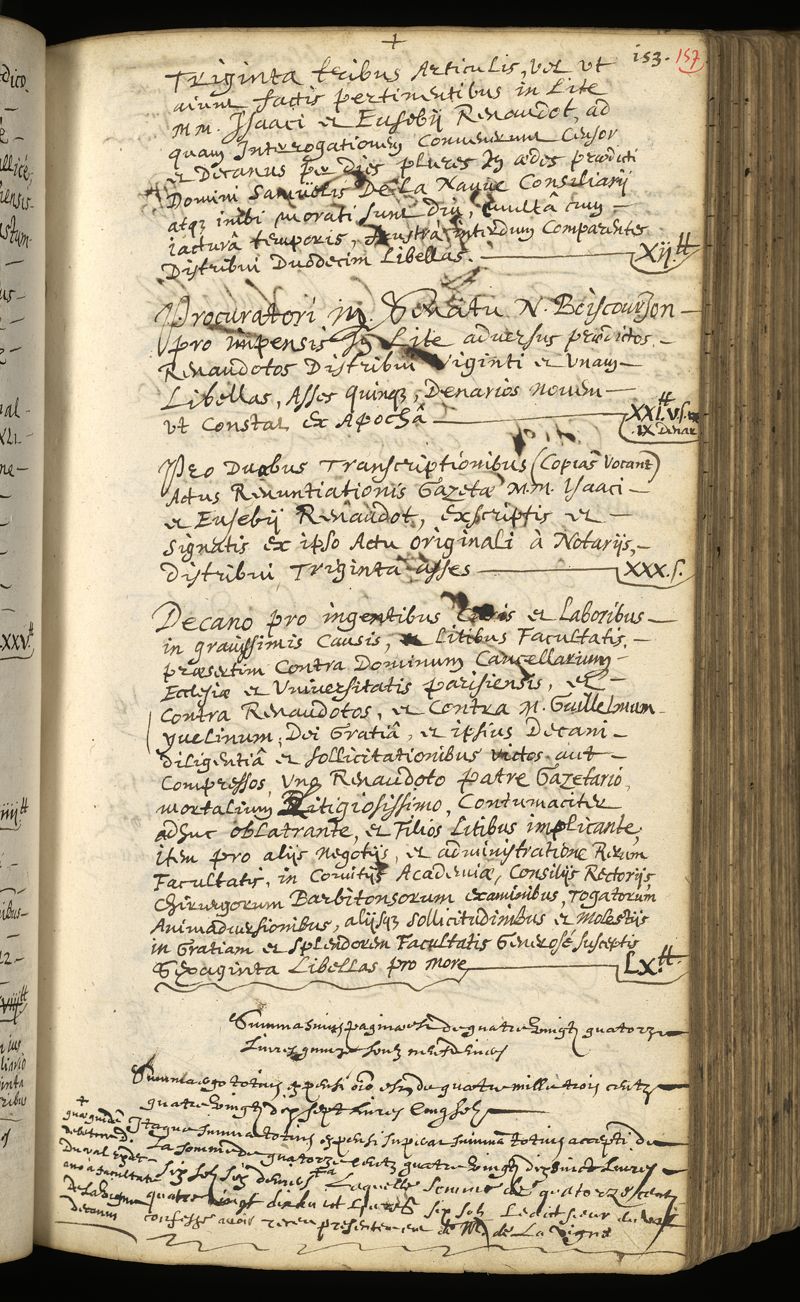 +
153. 157
Triginta tribus Articulis, vel ut
aiunt factis pertinentibus in Lite
MM. Isaaci et Eusebij Renaudot, ad
quam Interrogationem Convenerunt Censor
et Decanus per dies plures In ædes prædicti
Domini Samuëlis De La Nauue Consiliarij
atqz inibi morati sunt diu, multâ cum
iacturâ temporis, frustrà interdum Comparentes
Distribui Duodecim Libellas. — Xij.₶
Procuratori in Senatu N. Boiscourjon —
pro impensis In Lite adversus prædictos —
Renaudotos Distribui Viginti et Unam —
Libellas, Asses quinqz, Denarios novem —
ut Constat ex Apochâ — XXI.₶ V s.
IX Denar
Pro Duobus Transcriptionibus (Copias Vocant)
Actus Renuntiationis Gazetæ MM. Isaaci —
et Eusebij Renaudot, exscriptis et —
signatis ex ipso Actu originali à Notarijs, —
distribui Triginta asses — XXX.s.
Decano pro ingentibus Curis et Laboribus —
in gravissimis Causis, et Litibus Facultatis, —
præsertim Contra Dominum Cancellarium —
Ecclesiæ et Universitatis parisiensis, et —
Contra Renaudotos, et Contra M. Guillelmum
yvelinum, Dei Gratiâ, et ipsius Decani —
diligentiâ et sollicitationibus victos aut —
Compressos, Uno Renaudoto patre Gazetario,
mortalium Litigiosissimo, Contumaciter
adhuc oblatrante, et Filios Litibus implicante,
item pro alijs negotijs, et administratione Rerum
Facultatis, in Comitijs Academiæ, Consilijs Rectorijs,
Chirurgorum Barbitonsorum examinibus, Togatorum
Animadversionibus, alijsqz sollicitudinibus et Molestijs
in Gratiam et splendorem Facultatis Generosé susceptis
Sexaginta Libellas pro more — LX.₶
Summa huius paginæ est de quatre vingtz quatorze —
Livres quinze solz neuf deniers
Summa ergo totius expensi est de quatre mille trois centz —
quatre vingtz dix sept livres cinq solz —
Itaque summa totius expensi superat summam totius accepti de
La somme de quatorze centz quatre vingtz dix huict Livres —
six solz six deniers Laquelle somme de quatorze centz
quatre vingt dix huict Livres six solz Ledict sieur du Val
confesse avoir receu presentement de Mr de La Vigne
+
quæ quidem
debetur D.
Du val exdec-
ano a facultate
De La Vigne
decanus